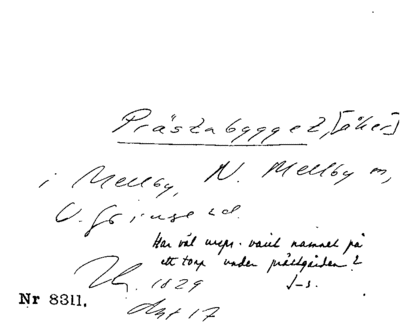 Prästabygget, [åker]
i Mellby, N. Mellby sn,
V. Göinge hd.
Har väl urspr. varit namnet på
ett torp under prästgården?
J-s.
1829
Akt 17
Nr 8311.